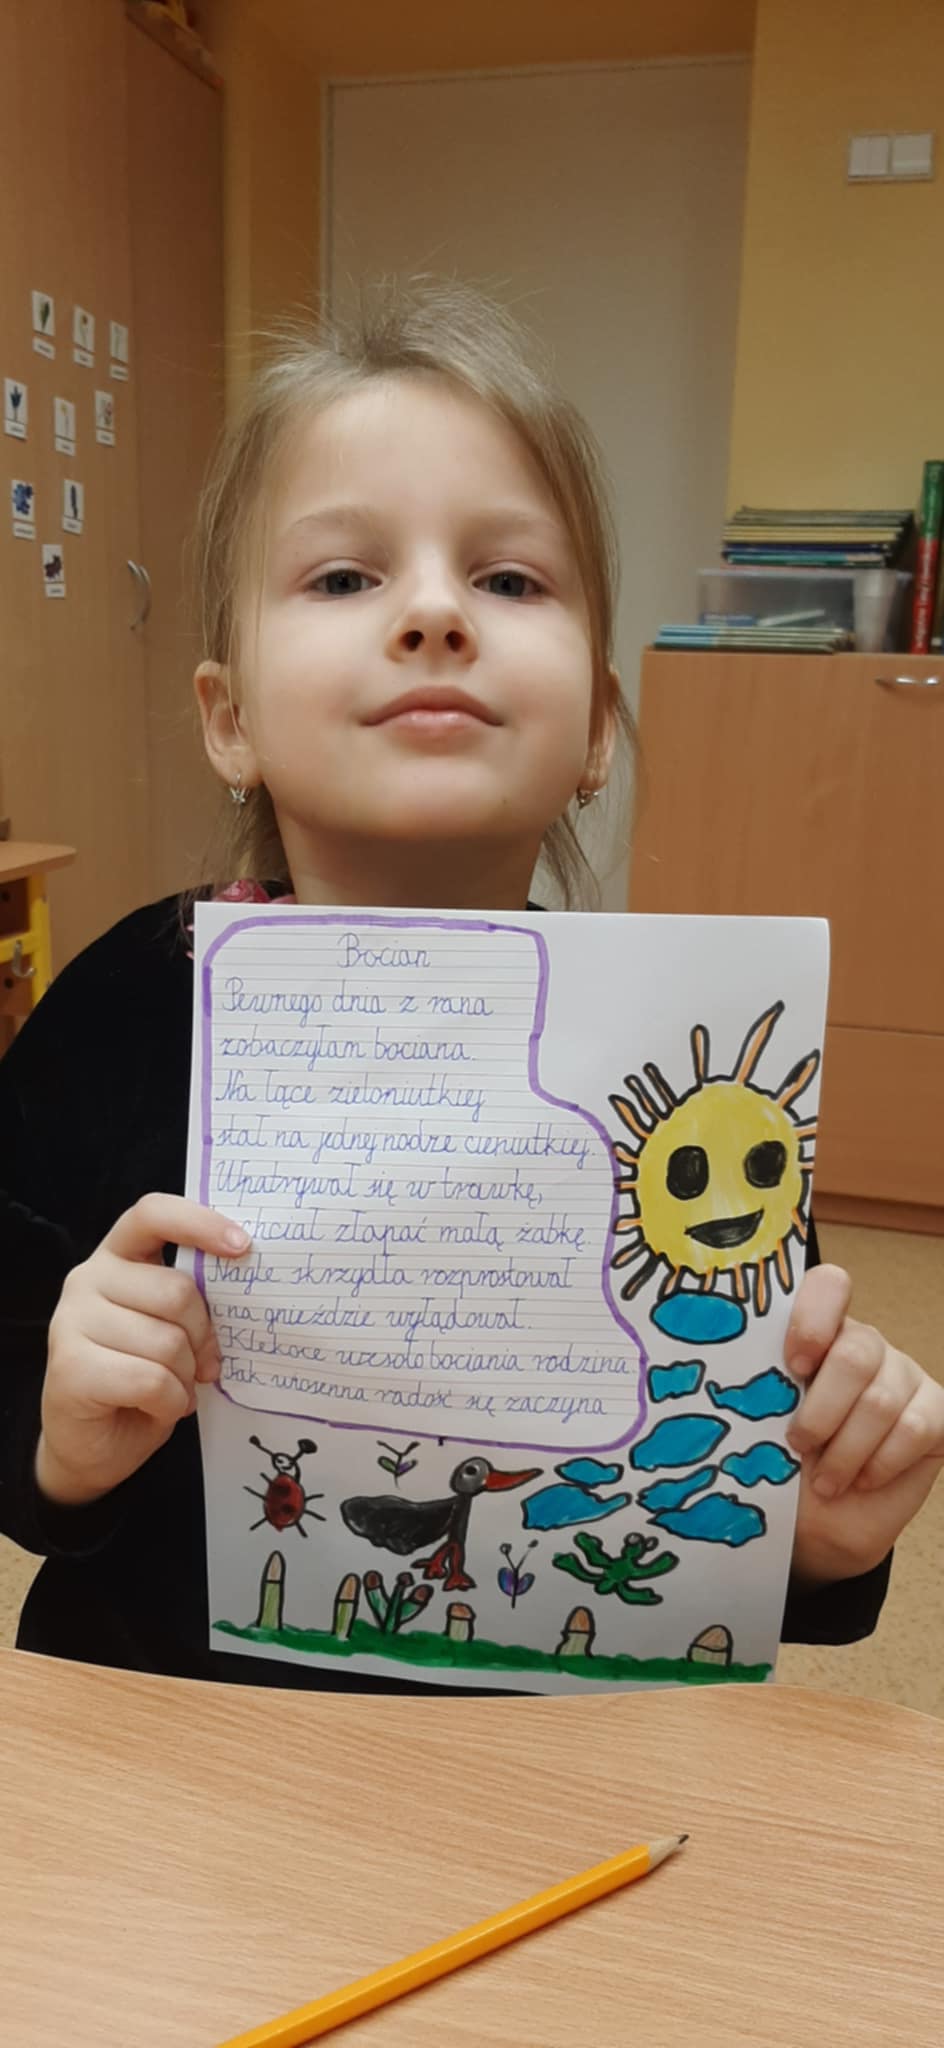 Bocian
Pewnego dnia z rana
zobaczyłam bociana.
Na łące zieloniutkiej
stał na jednej nodze cieniutkiej.
Wpatrywał się w trawkę,
chciał złapać małą żabkę.
Nagle skrzydła rozprostował
i na gnieździe wylądował.
Klekoce wesoło bociania rodzina.
Tak wiosenna radość się zaczyna